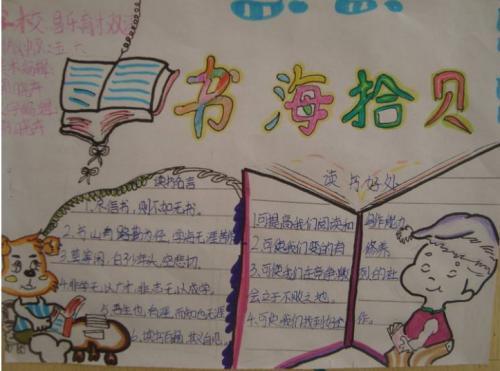 书海拾贝
读书名言
1.尽信书，则不如无书。
2.书山有路勤为径，学海无涯苦作
3.莫等闲，白了少年头，空悲切。
4.非学无以广才，非志无以成学。
5.吾生也有涯，而知也无涯
6.读书百遍，其义自见。
读书好处
1.可提高我们阅读和写作能力
2.可使我们变的有 修养
3.可使我们在竞争激烈的社
会立于不败之地。
4.可使我们找到好工作。